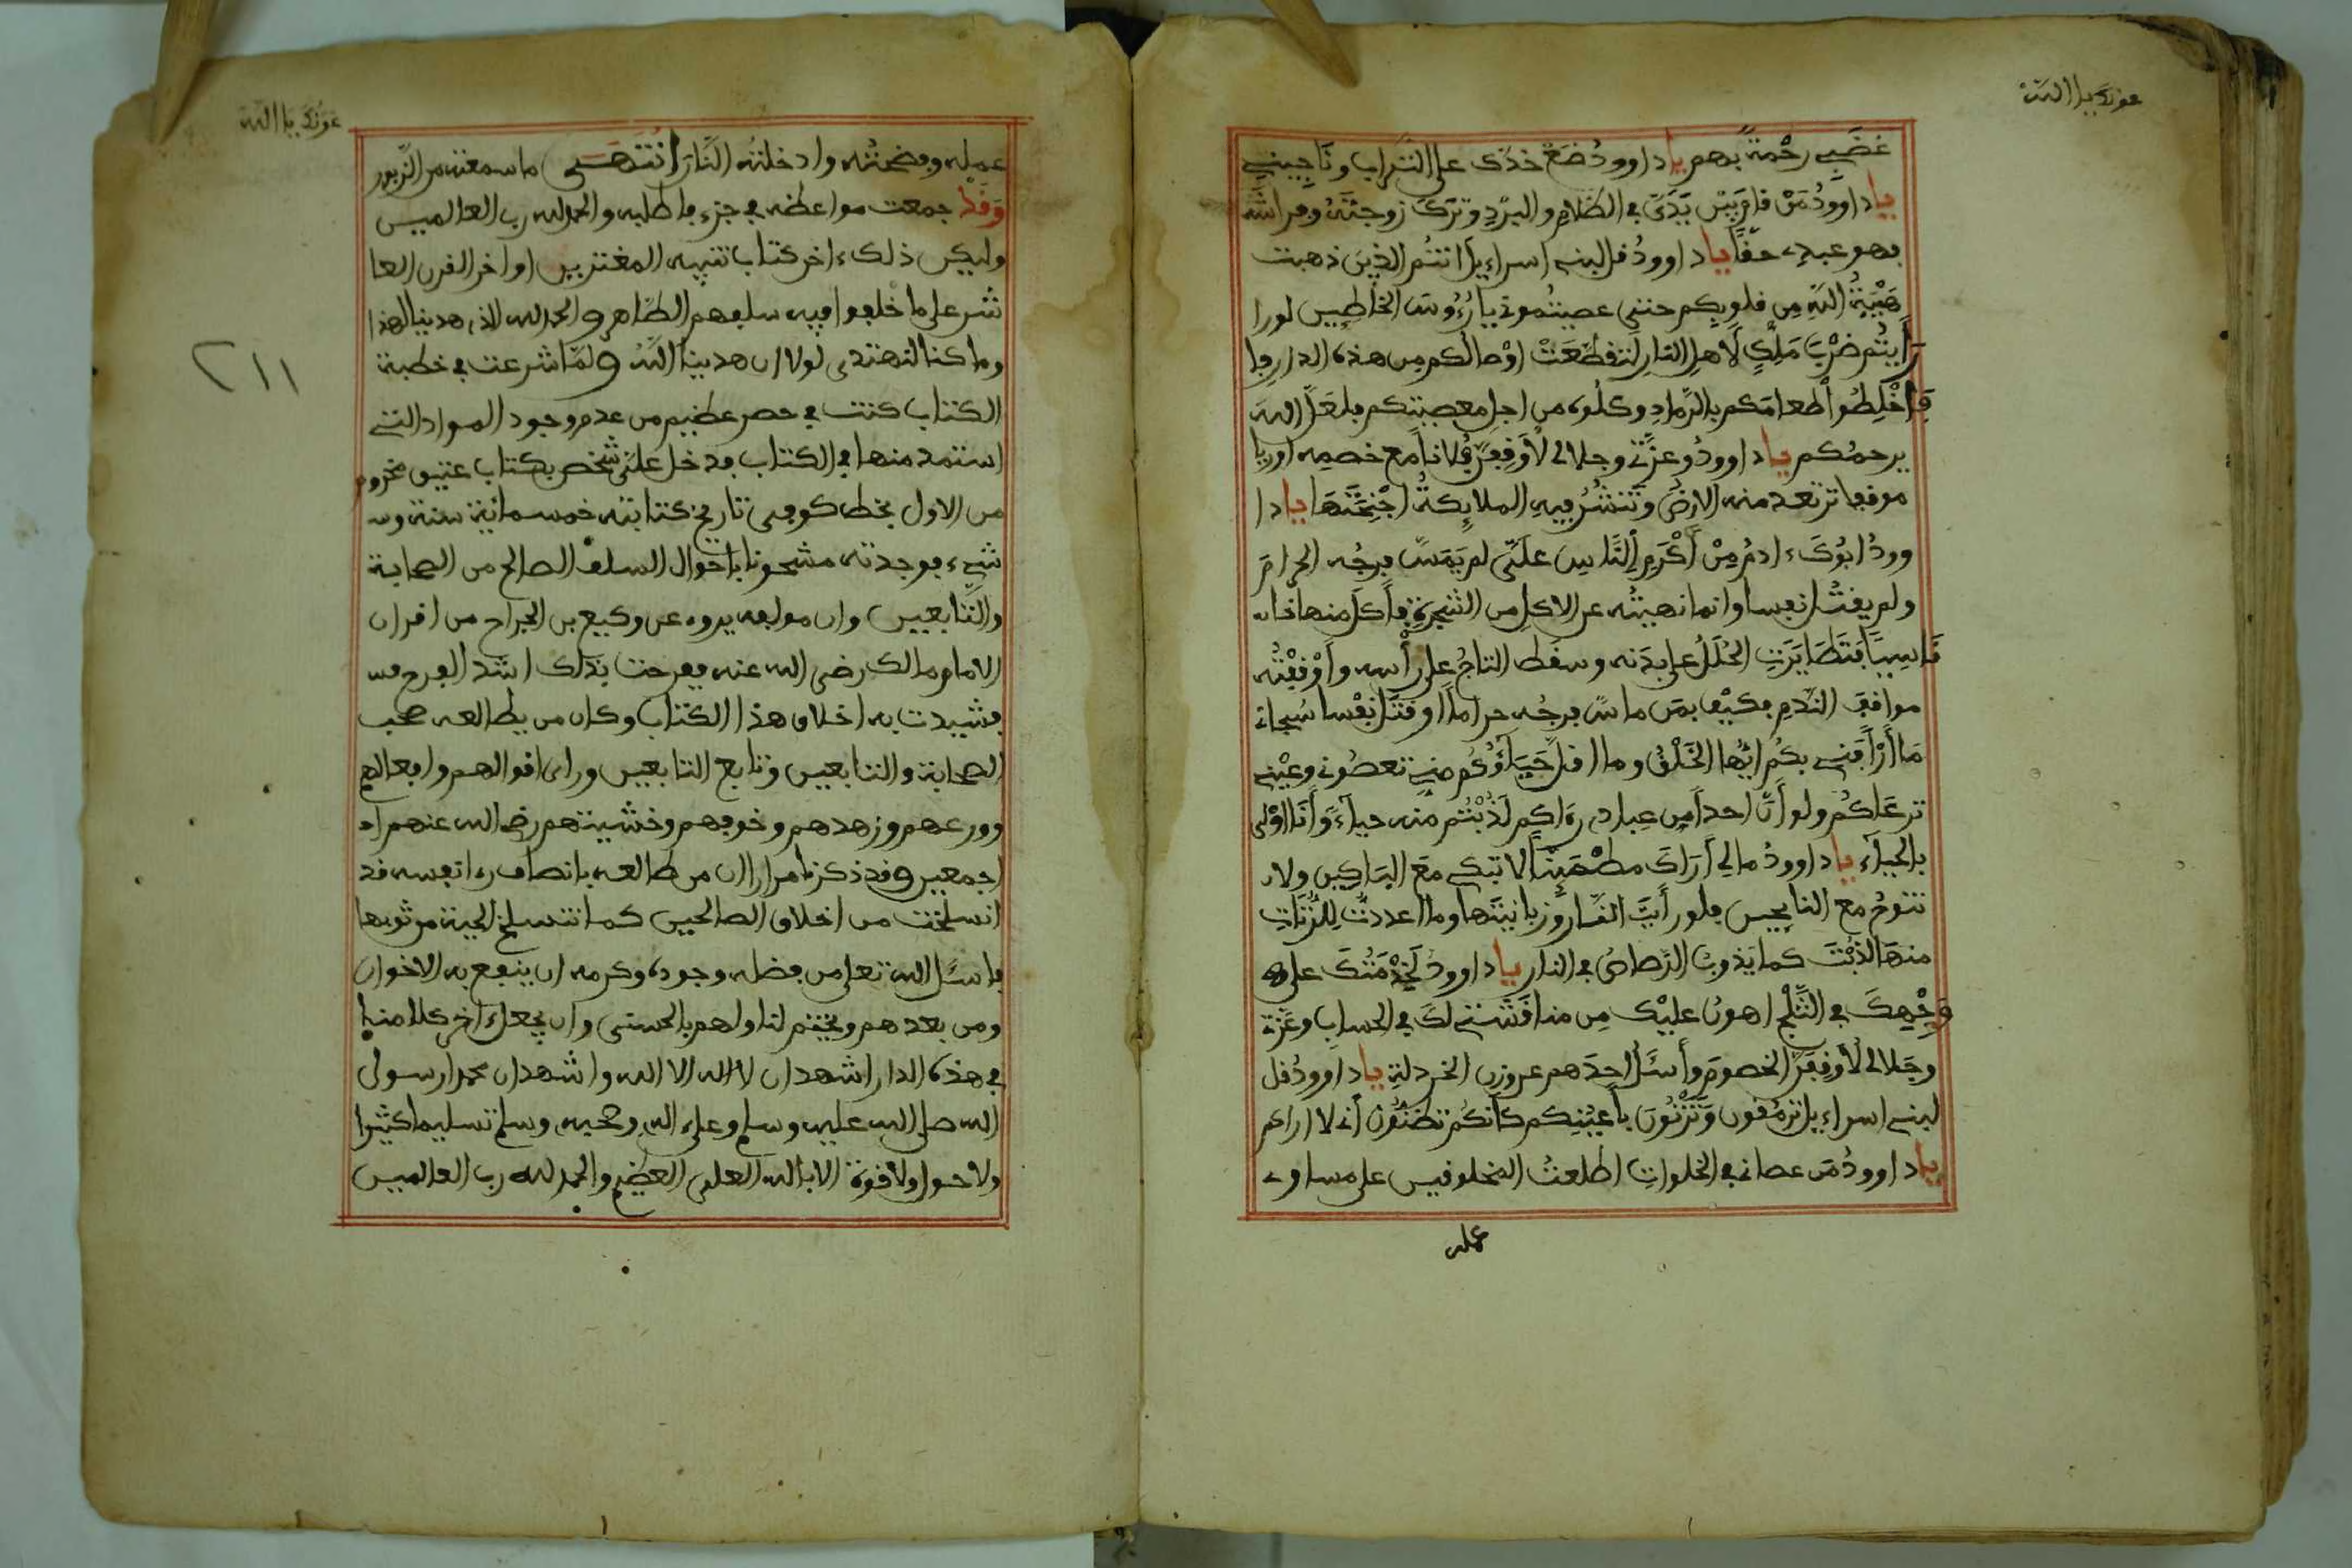 عونك يا الله
غضبي رحمة بهم يا داوود ضع خدك على التراب وناجيني
يا داوود من قام بين يدي في الظلام والبرد وترك زوجته وفراشه
فهو عبدي حقا يا داوود قل لبني اسراءيل انتم الذين ذهبت
هيبة الله من قلوبكم حتى عصيتموني يا رءوس الخاطيين لو را
رايتم ضرب ملك لاهل النار لتقطعت اوصالكم من هذه الدار فا
فاخلطوا طعامكم بالرماد وكلوه من اجل معصيتكم فلعل الله
يرحمكم يا داوود وعزتي وجلالي لاوقفن فلانا مع خصمه اوريا
موقفا ترتعد منه الارض وتنشر فيه الملايكة اجنحتها يا دا
وود ابوك ءادم من اكرم الناس علي لم يمس فرجه الحرام
ولم يقتل نفسا وانما نهيته عن الاكل من الشجرة فاكل منها
ناسيا فتطايرت الحلل عن بدنه وسقط التاج عن راسه واوقفته
مواقف الندم فكيف بمن ماس فرجه حراما او قتل نفسا سبحانه
ما ارافني بكم ايها الخلق وما اقل حياؤكم مني تعصوني وعيني
ترعاكم ولو ان احدا من عبادي رءاكم لذبتم منه حياء وانا اولى
بالحياء يا داوود مالي اراك مطمينا الا تبكي مع الباكين ولا
تنوح مع النايحين فلو رايت النار وزبانيتها وما اعددت للزنات
منها لذبت كما يذوب الرصاص في النار يا داوود لخدمتك على
وجهك في الثلج اهون عليك من مناقشتي لك في الحساب وعزتي
وجلالي لاوقفن الخصوم واسئل احدهم عن وزن الخردلة يا داوود قل
لبني اسراءيل ترمقون وتزنون باعينكم كانكم تظنون اني لا اراكم
يا داوود من عصاني في الخلوات اطلعت المخلوقين على مساوي
عمله
عونك يا الله
عمله وفضحته وادخلته النار انتهى ما سمعته من الزبور
وقد جمعت مواعظه في جزء فاطلبه والحمد لله رب العالمين
وليكن ذلك ءاخر كتاب تنبيه المغترين اواخر القرن العا
شر على ما خالفوا فيه سلفهم الطاهر والحمد لله الذي هدينا لهذا
وما كنا لنهتدي لولا ان هدينا الله ولما شرعت في خطبة
الكتاب كنت في حصر عظيم من عدم وجود المواد التي
استمد منها في الكتاب فدخل علي شخص بكتاب عتيق مخروم
من الاول بخط كوفي تاريخ كتابته خمسمائية سنة و
شيء فوجدته مشحونا باحوال السلف الصالح من الصحابة
والتابعين وان مولفه يروي عن وكيع بن الجراح من اقران
الامام مالك رضي الله عنه ففرحت بذلك اشد الفرح
فشيدت به اخلاق هذا الكتاب وكان من يطالعه صحب
الصحابة والتابعين وتابع التابعين وراى اقوالهم وافعالهم
وورعهم وزهدهم وخوفهم وخشيتهم رضي الله عنهم
اجمعين وقد ذكرنا مرارا ان من طالعه بانصاف رءا نفسه قد
انسلخت من اخلاق الصالحين كما تنسلخ الحية من ثوبها
فاسئل الله تعلى من فضله وجوده وكرمه ان ينفع به الاخوان
ومن بعدهم ويختم لنا ولهم بالحسنى وان يجعل ءاخر كلامنا
في هذه الدار اشهد ان لا اله الا الله واشهد ان محمدا رسول
الله صلى الله عليه وسلم وعلى ءاله وصحبه وسلم تسليما كثيرا
ولا حول ولا قوة الا بالله العلي العظيم والحمد لله رب العالمين
٢١١